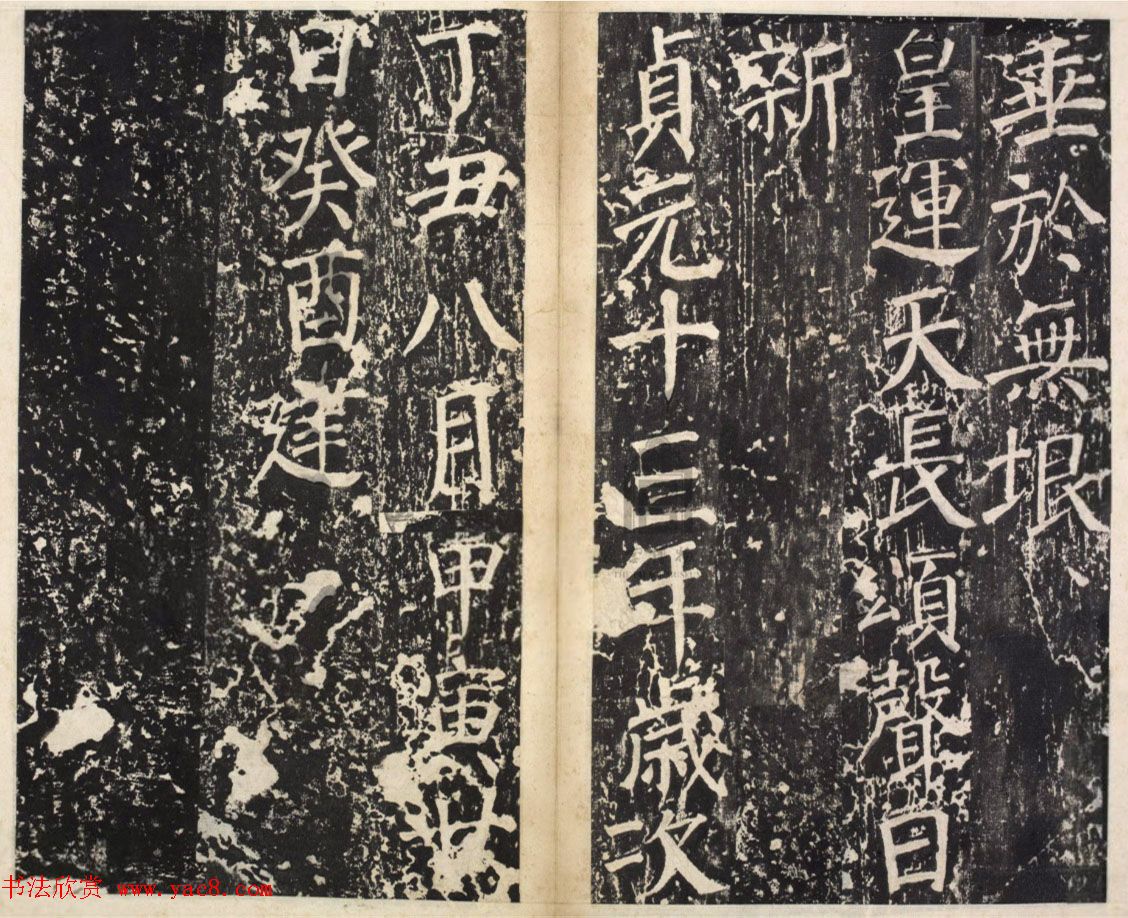 垂於無垠
皇運天長頌聲日
新
貞元十三年歲次
丁丑八月甲寅朔
日癸酉建
书法欣赏 www.yac8.com